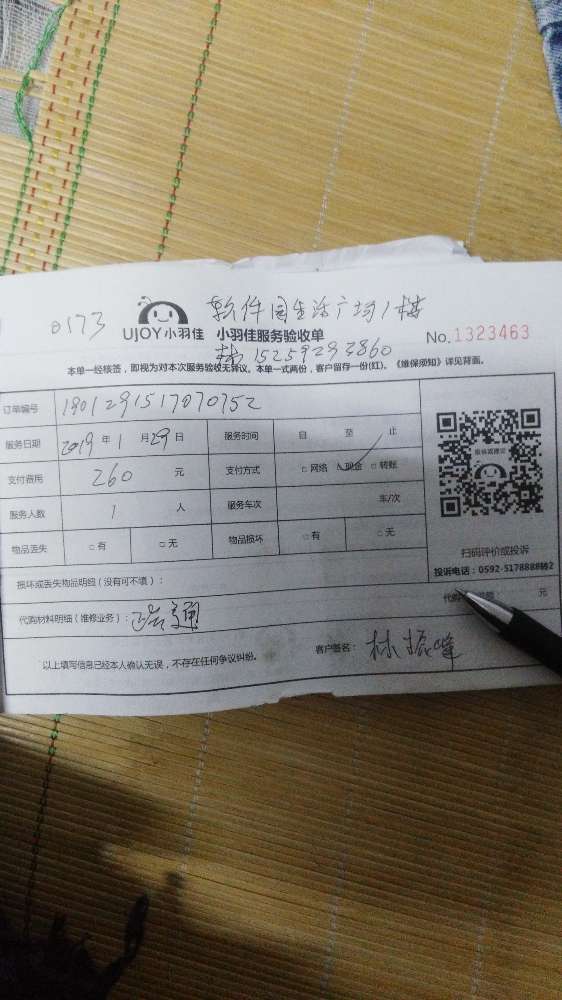 0173 UJOY小羽佳 软件园生活广场1楼
小羽佳服务验收单 No.1323463
林 15259293860
本单一经核签，即视为对本次服务验收无异议。本单一式两份，客户留存一份(红)。《维保须知》详见背面。
订单编号 1901291517070752
服务日期 2019 年 1 月 29 日 服务时间 自 至 止
支付费用 260 元 支付方式 □网络 ☑现金 □转账
服务人数 1 人 服务车次 车/次
物品丢失 □有 □无 物品损坏 □有 □无
扫码评价或投诉
投诉电话：0592-5178888转2
损坏或丢失物品明细（没有可不填）：
代购材料明细（维修业务）： 代购 元
以上填写信息已经本人确认无误，不存在任何争议纠纷。 客户签名： 林振峰